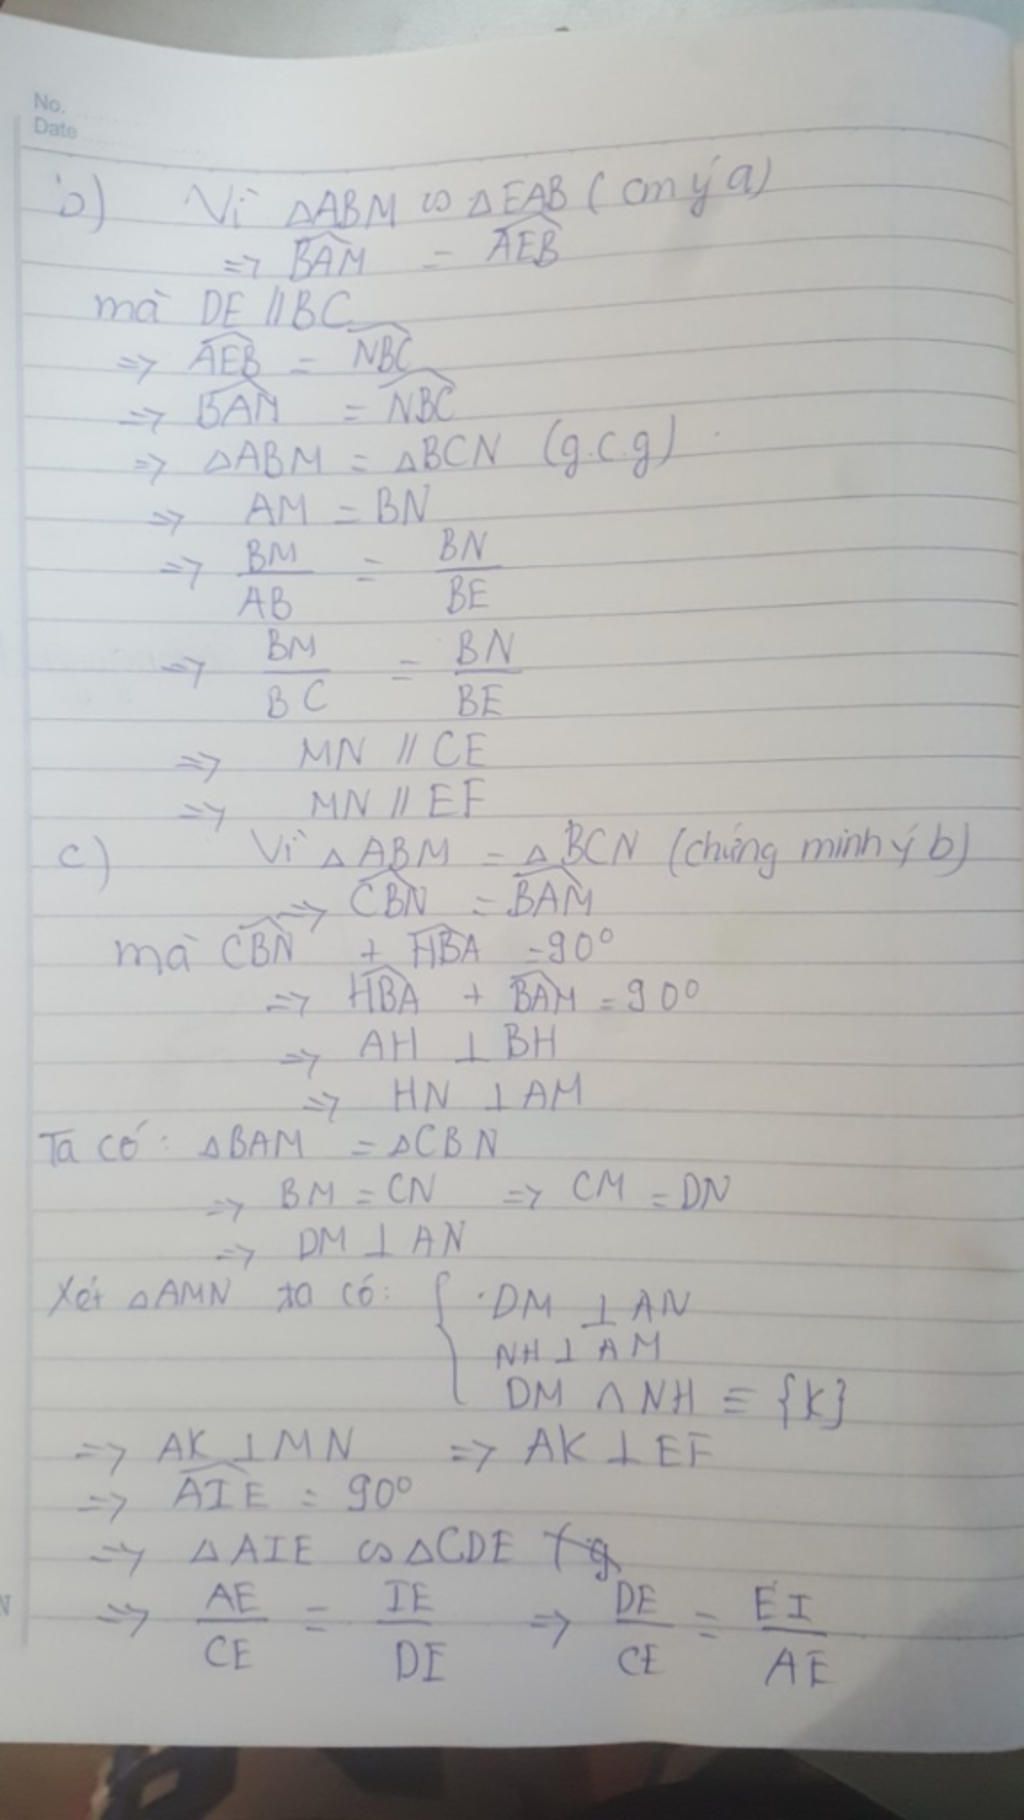 No.
Date
b) Vì △ABM ∽ △EAB ( cm ý a)
=> \widehat{BAM} = \widehat{AEB}
mà DE // BC
=> \widehat{AEB} = \widehat{NBC}
=> \widehat{BAM} = \widehat{NBC}
=> △ABM = △BCN (g.c.g)
=> AM = BN
=> \frac{BM}{AB} = \frac{BN}{BE}
=> \frac{BM}{BC} = \frac{BN}{BE}
=> MN // CE
=> MN // EF
c) Vì △ABM = △BCN (chứng minh ý b)
=> \widehat{CBN} = \widehat{BAM}
mà \widehat{CBN} + \widehat{HBA} = 90°
=> \widehat{HBA} + \widehat{BAM} = 90°
=> AH ⊥ BH
=> HN ⊥ AM
Ta có: △BAM = △CBN
=> BM = CN => CM = DN
=> DM ⊥ AN
Xét △AMN ta có: { DM ⊥ AN
NH ⊥ AM
DM ∩ NH ≡ {K}
=> AK ⊥ MN => AK ⊥ EF
=> \widehat{AIE} = 90°
=> △AIE ∽ △CDE
=> \frac{AE}{CE} = \frac{IE}{DE} => \frac{DE}{CE} = \frac{EI}{AE}